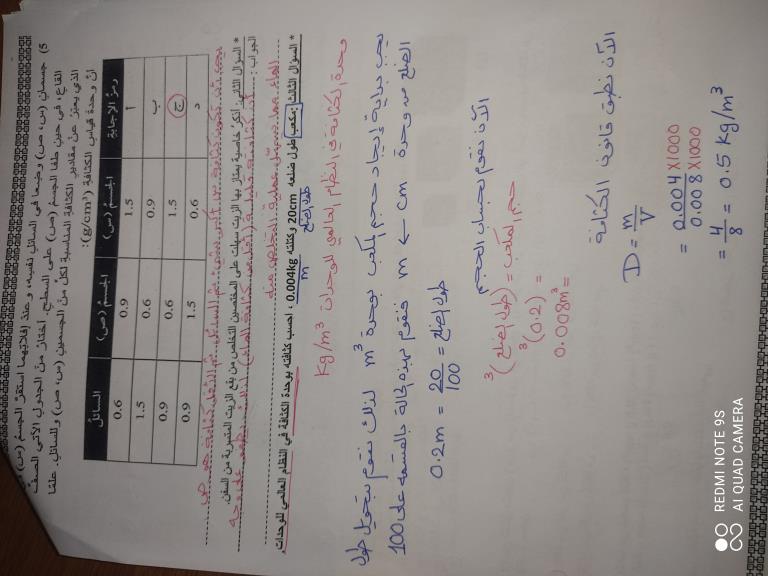 5) جسمان (س، ص) وضعا في السائل نفسِه، وعند إفلاتِهما استقرَّ الجسمُ (س)
القاع، في حين طفا الجسم (ص) على السطح. اختار من الجدول الآتي الصف
الذي يعبّر عن مقادير الكثافة المناسبة لكلّ من الجسمين (س، ص) والسائل، علمًا
أنّ وحدة قياس الكثافة (g/cm³):
رمز الإجابة الجسم (س) الجسم (ص) السائل
أ 1.5 0.9 0.6
ب 0.9 0.6 1.5
ج 1.5 0.6 0.9
د 0.6 1.5 0.9
* السؤال الثاني: أذكر خاصية يمتاز بها الزيت سهلت على المختصين التخلص من بقع الزيت المتسربة من السفن.
الجواب:
* السؤال الثالث: مكعب طول ضلعه 20cm وكتلته 0.004kg، احسب كثافته بوحدة الكثافة في النظام العالمي للوحدات.
طول الضلع
m
وحدة الكثافة في النظام العالمي للوحدات Kg/m³
يجب بداية إيجاد حجم المكعب بوحدة m³ لذلك نقوم بتحويل طول
الضلع من وحدة cm ← m فنقوم بهذه الحالة بالقسمة على 100
طول الضلع = 20/100 = 0.2m
الآن نقوم بحساب الحجم
حجم المكعب = (طول الضلع)³
= (0.2)³
= 0.008m³
الآن نطبق قانون الكثافة
D = m/V
= 0.004×1000 / 0.008×1000
= 4/8 = 0.5 Kg/m³
REDMI NOTE 9S
AI QUAD CAMERA